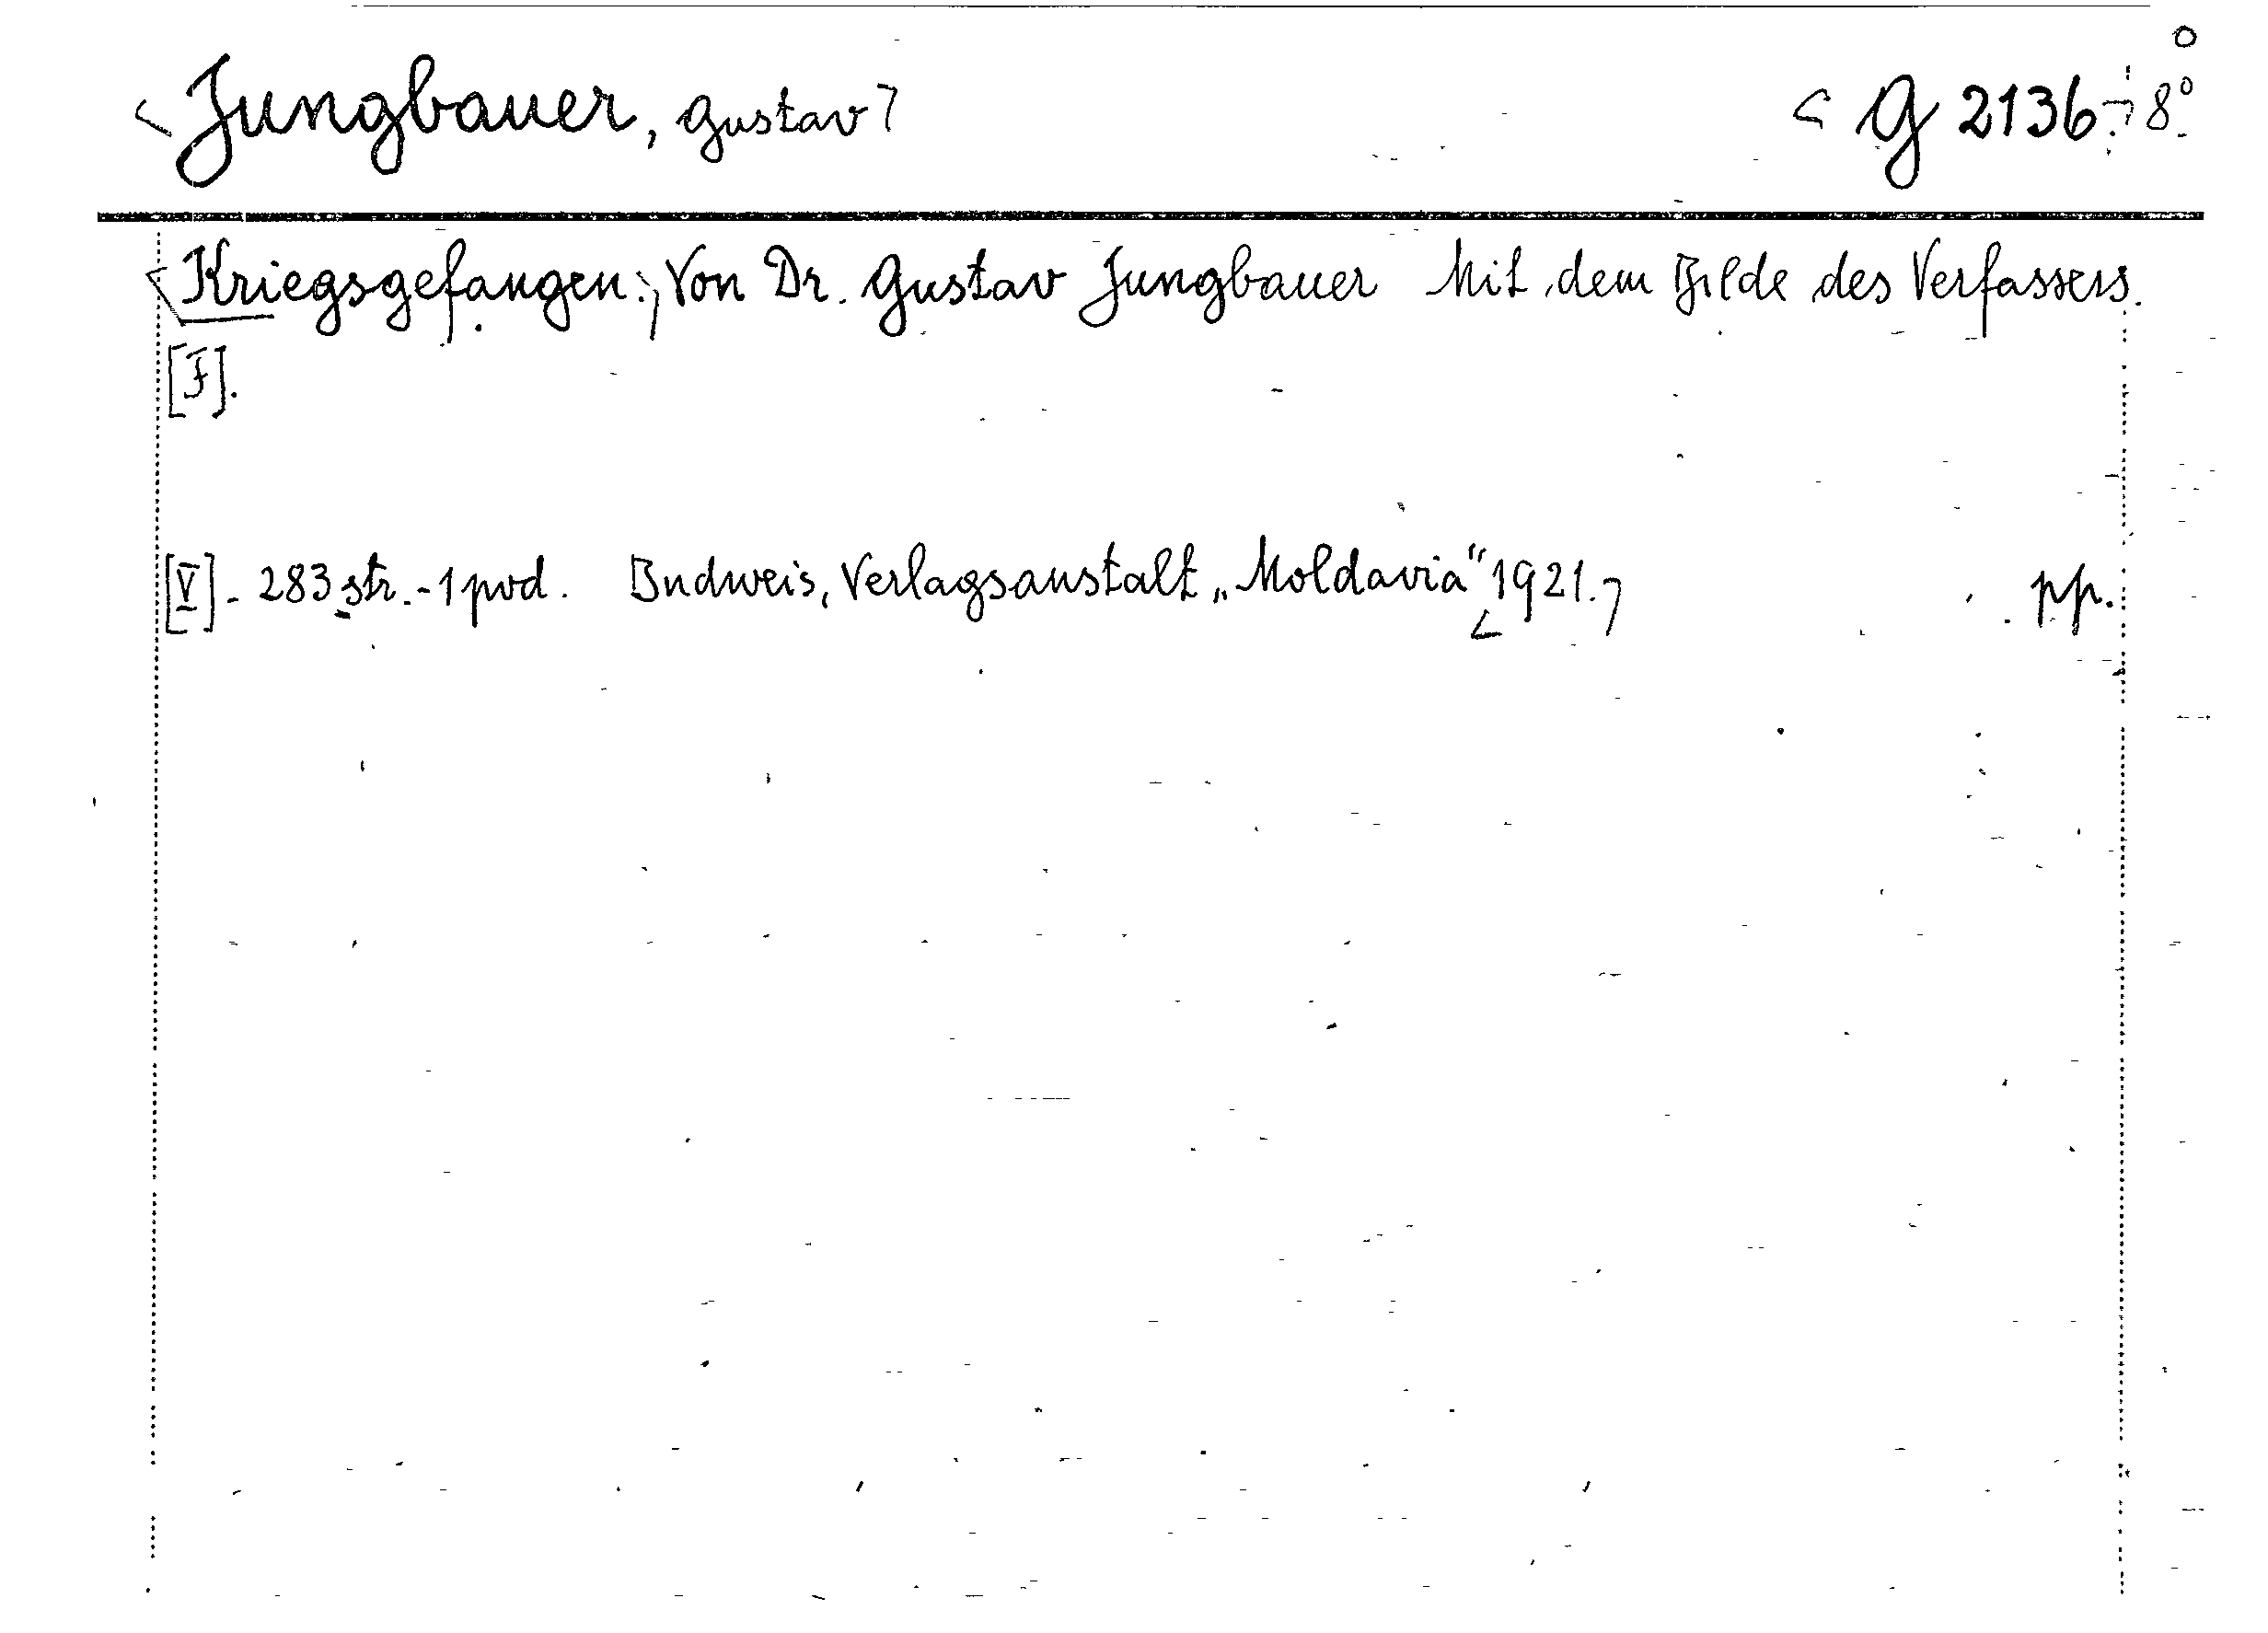 Jungbauer, Gustav G 2136 8°
Kriegsgefangen. Von Dr. Gustav Jungbauer Mit dem Bilde des Verfassers.
[F].
[V] - 283 str. - 1 pod. Budweis, Verlagsanstalt „Moldavia" 1921. pp.